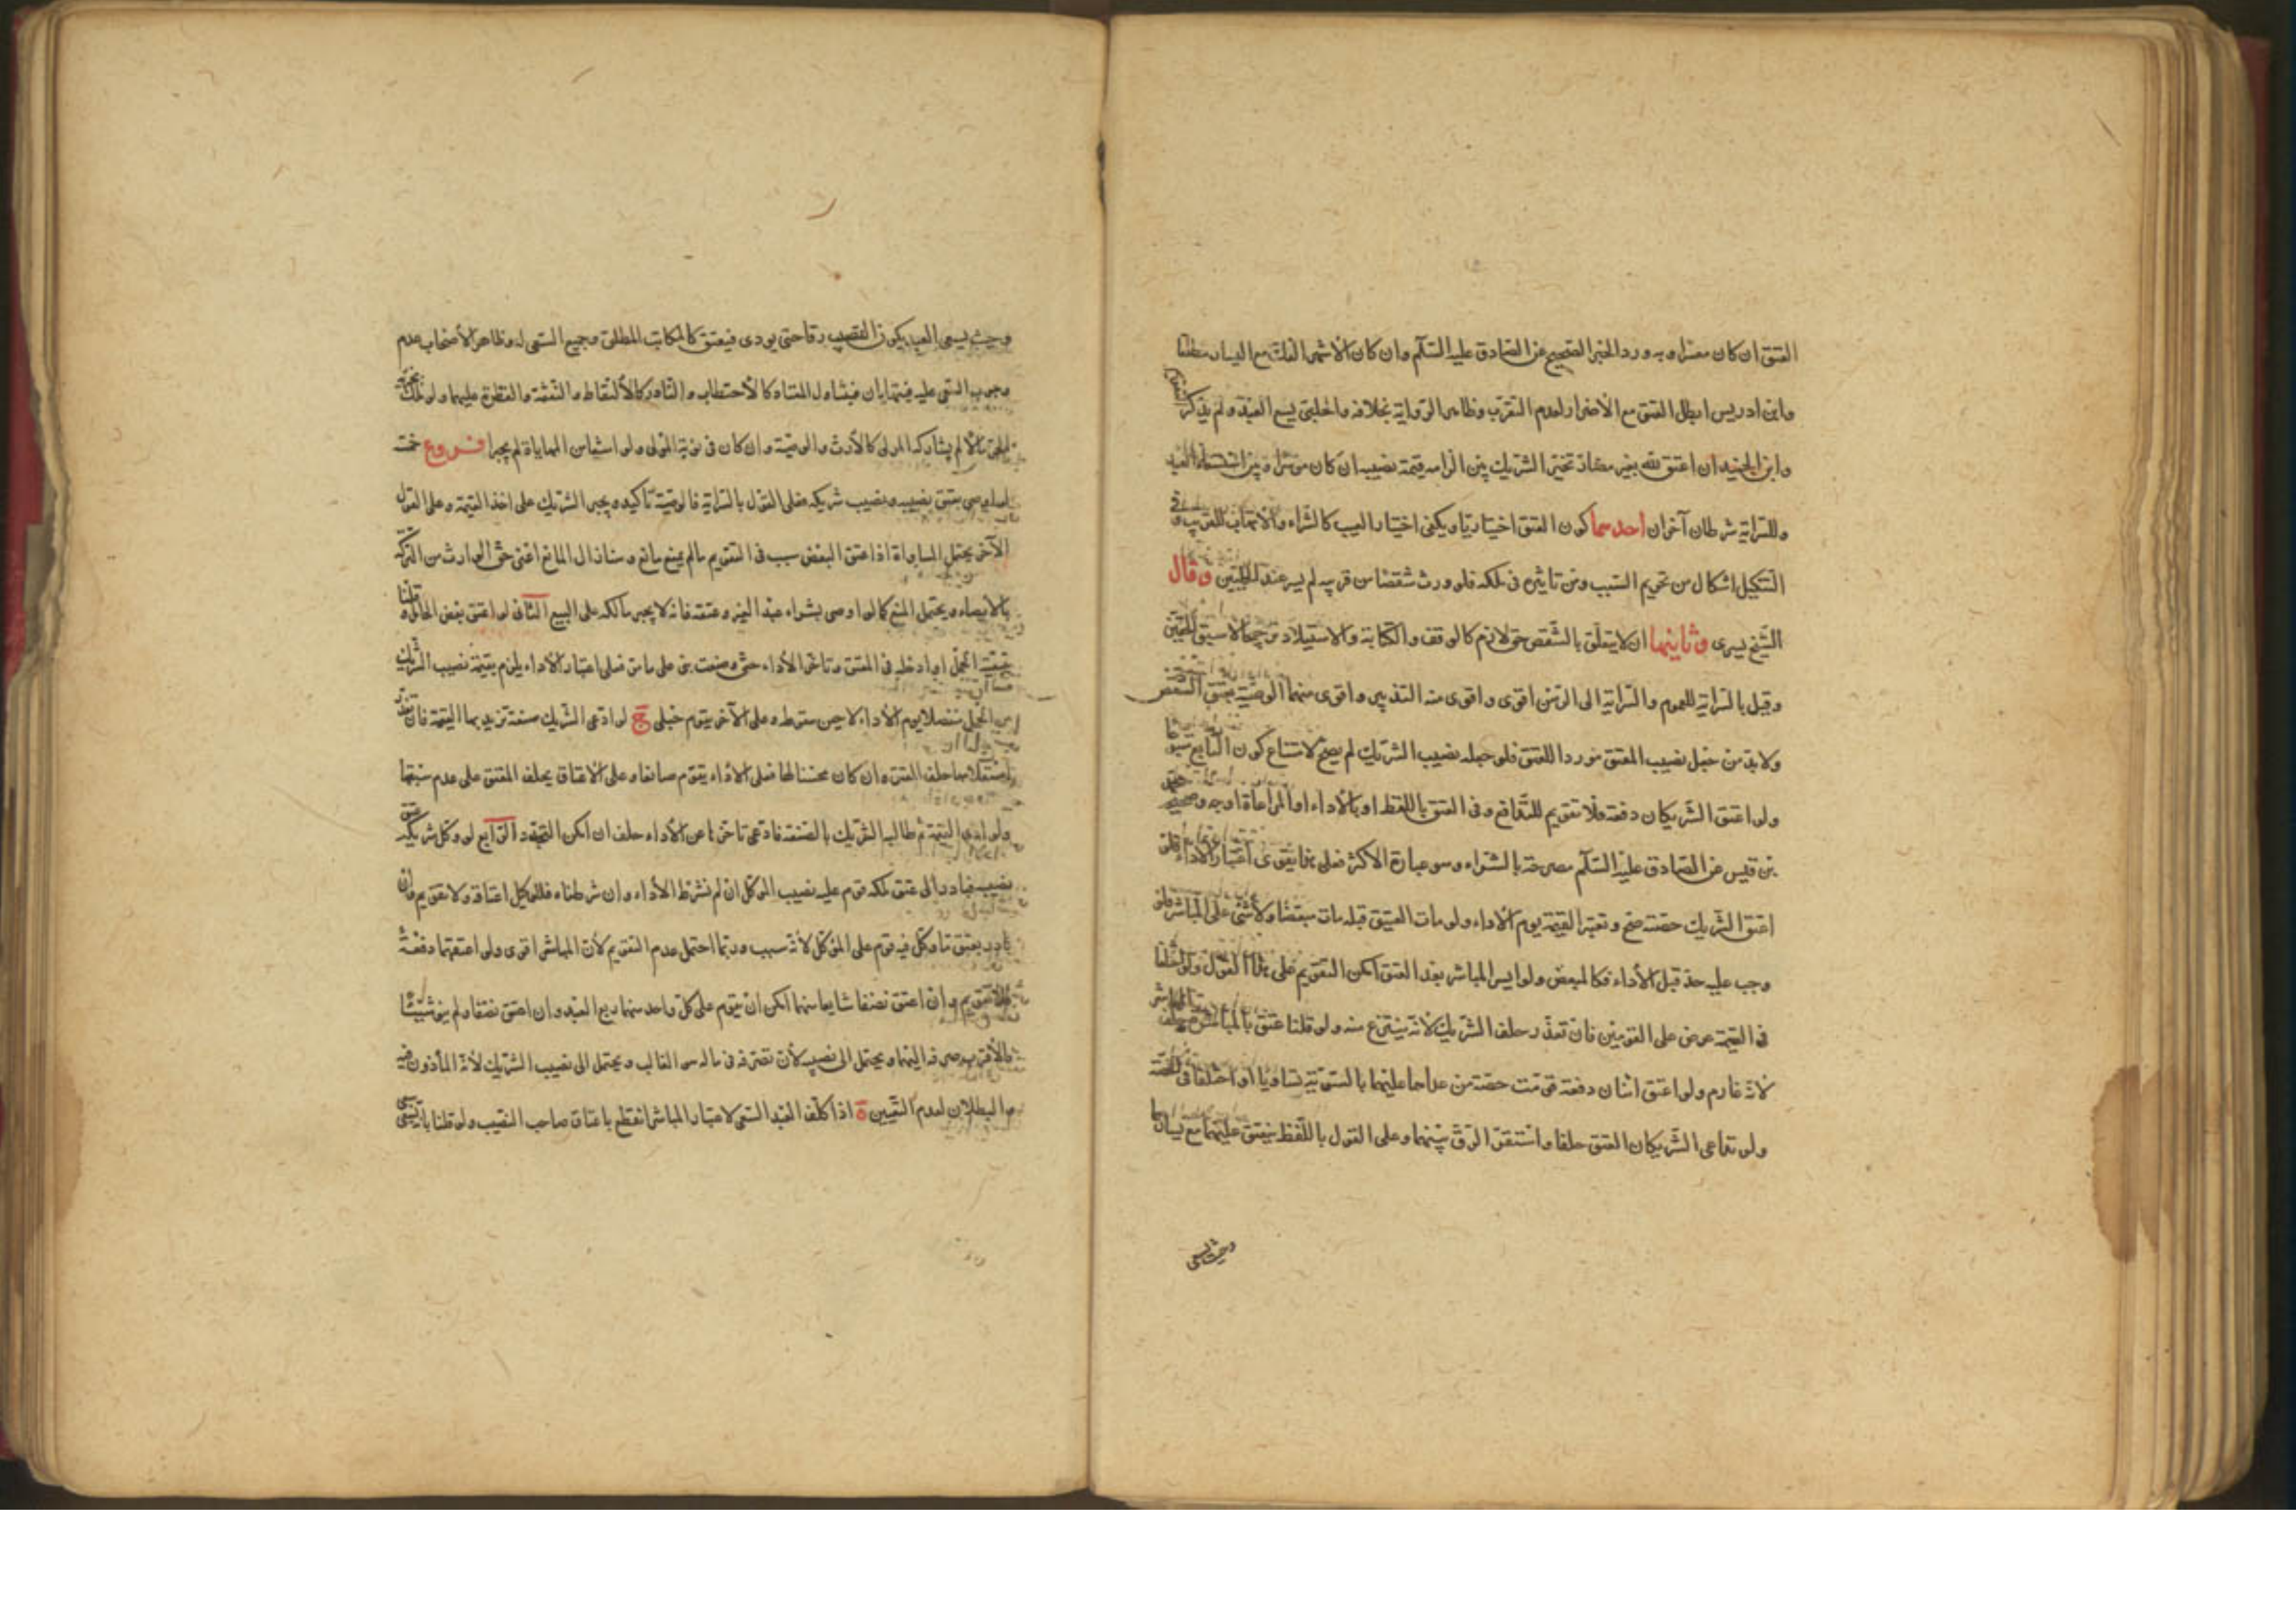 العتق ان كان معسرا وبه ورد الخبر الصحيح عن الصادق عليه السلم وان كان الأشهر الفك مع اليسار مطلقا
وابن ادريس ابطل العتق مع الاضرار لعدم التقرب وظاهر الرواية بخلافه والحلبي يسع العبد ولم يذكر التقويم
وابن الجنيد ان اعتق لله بغير مضار تخير الشريك بين الزامه قيمة نصيبه ان كان موسرا وبين استسعاء العبد
وللسراية شرطان آخران احدهما كون العتق اختياريا ويكفي اختيار السبب كالشراء والاتهاب للقريب وفي
التنكيل اشكال من تحريم السبب ومن تاثيره في ملكه فلو ورث شقصا من قريبه لم يسر عند الحلبيين وقال
الشيخ يسري وثانيهما ان لا يتعلق بالشقص حق لازم كالوقف والكتابة والاستيلاد ترجيحا لاسبق الحقين
وقيل بالسراية للعموم والسراية الى الرهن اقوى واقوى منه التدبير واقوى منهما الوصية بعتق الشقص
ولا بد من جعل نصيب المعتق موردا للعتق فلو جعله نصيب الشريك لم يصح لامتناع كون التابع متبوعا
ولو اعتق الشريكان دفعة فلا تقويم للتدافع وفي العتق باللفظ او بالأداء او المراعاة اوجه وصحيحة محمد
بن قيس عن الصادق عليه السلم مصرحة بالشراء وهو عبارة الاكثر فعلى هذا يقوى اعتبار الأداء فلو
اعتق الشريك حصته صح وتعتبر القيمة يوم الأداء ولو مات العتيق قبله مات مبعضا ولا شئ على المباشر ولو
وجب عليه حد قبل الأداء فكالمبعض ولو ايسر المباشر بعد العتق امكن التقويم على هذا القول ولو اختلفا
في القيمة عرض على المقومين فان تعذر حلف الشريك لأنه ينتزع منه ولو قلنا عتق بالمباشرة حلف المباشر
لأنه غارم ولو اعتق اثنان دفعة قومت حصة من عداهما عليهما بالسوية تساويا او اختلفا في الحصة
ولو تداعى الشريكان العتق حلفا واستقر الرق بينهما وعلى القول باللفظ ينعتق عليهما مع يسارهما
وحيث يسعى
وحيث يسعى العبد يكون النصيب رقا حتى يؤدي فيعتق كالمكاتب المطلق وجميع السعي له وظاهر الأصحاب عدم
وجوب السعي عليه فيتهايان فيتناول المعتاد كالأحتطاب والنادر كالألتقاط والنفقة والفطرة عليهما ولو ملك بجزئه
الحر مالا لم يشاركه المولى كالأرث والوصية وان كان في نوبة المولى ولو امتنعا من المهاياة لم يجبرا فروع خمسة
لو اوصى بعتق نصيبه ونصيب شريكه فعلى القول بالسراية فالوصية تأكيد ويجبر الشريك على اخذ القيمة وعلى القول
الآخر يحتمل المساواة اذا عتق البعض سبب في التقويم ما لم يمنع مانع وهنا زال المانع اعني حق الوارث من التركة
بالايصاء ويحتمل المنع كما لو اوصى بشراء عبد الغير وعتقه فانه لا يجبر مالكه على البيع الثاني لو اعتق بعض الحامل وقلنا
بتبعية الحمل او ادخله في العتق وتاخر الأداء حتى وضعت بني على ما مر فعلى اعتبار الأداء يلزم بقيمة نصيب الشريك
من الحمل منفصلا يوم الأداء لا حين سقوطه وعلى الآخر يقوم حبلى ج لو ادعى الشريك صنعة تزيد بها القيمة فان تعذر
استعلامها حلف المعتق وان كان محسنا لها فعلى الأداء يقوم صانعا وعلى الاعتاق يحلف المعتق على عدم سبقها
ولو ادى القيمة ثم طالبه الشريك بالصنعة فادعى تاخرها عن الأداء حلف ان امكن التجدد الرابع لو وكل شريكه في عتق
نصيبه فبادر الى عتق ملكه قوم عليه نصيب الموكل ان لم نشترط الأداء وان شرطناه فللوكيل اعتاقه ولا تقويم وان
بادر بعتق ما وكل فيه قوم على الموكل لأنه سبب وربما احتمل عدم التقويم لأن المباشر اقوى ولو اعتقهما دفعة
فلا تقويم وان اعتق نصفا شايعا منهما امكن ان يقوم على كل واحد منهما ربع العبد وان اعتق نصفا ولم ينو شيئا
فالأقرب صرفه اليهما ويحتمل الى نصيبه لأن تصرفه في ماله هو الغالب ويحتمل الى نصيب الشريك لأنه المأذون فيه
والبطلان لعدم التعيين ة اذا كلف العبد السعي لاعسار المباشر انقطع باعتاق صاحب النصيب ولو قلنا بان